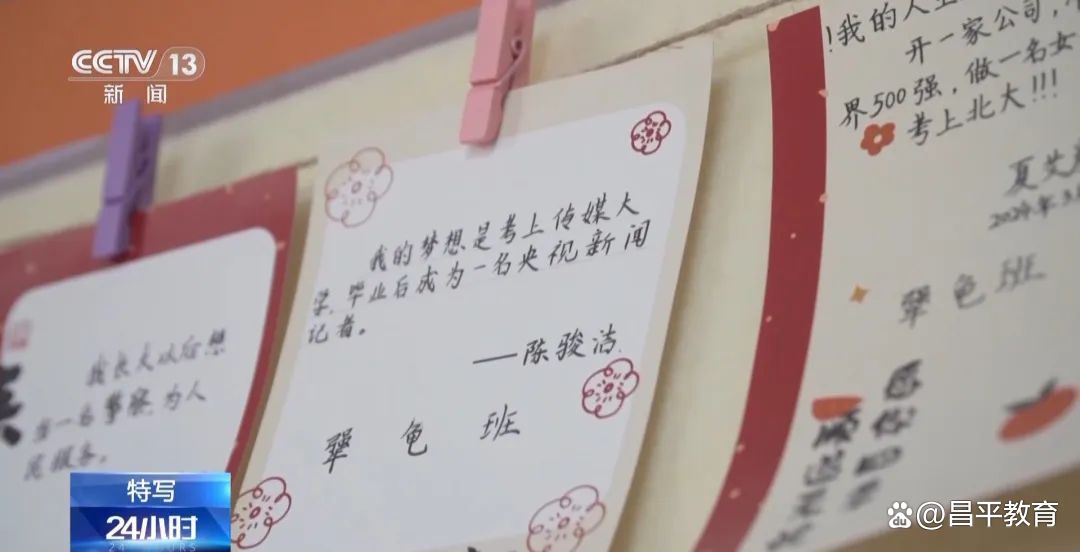 CCTV 13
新闻
我长大以后想
当一名警察.为人
民服务。
我的梦想是考上传媒大
学,毕业后成为一名央视新闻
记者。
——陈骏洁.
犟龟班
我的人
开一家公司,
界500强,做一名女
考上北大!!!
夏艾
2024年3.
犟龟班
愿你
顺遂无
特写
24小时
@昌平教育